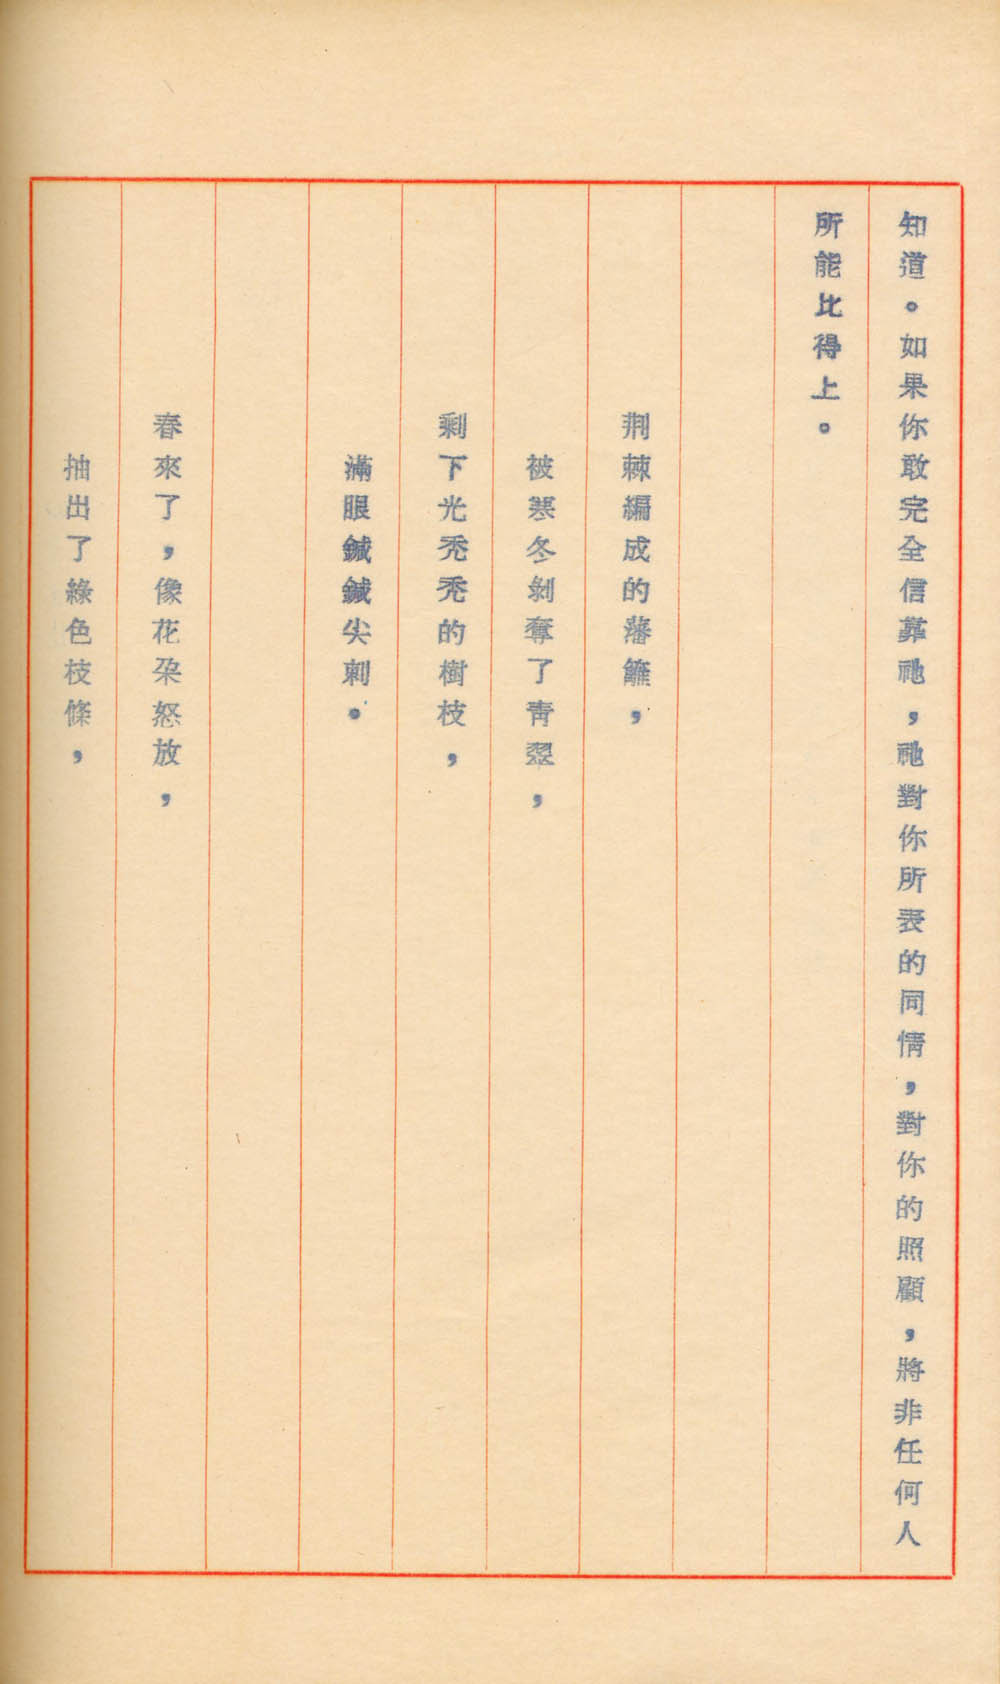 知道。如果你敢完全信靠祂，祂對你所表的同情，對你的照顧，將非任何人
所能比得上。
荆棘編成的藩籬，
被寒冬剝奪了青翠，
剩下光禿禿的樹枝，
滿眼鍼鍼尖刺。
春來了，像花朶怒放，
抽出了綠色枝條，